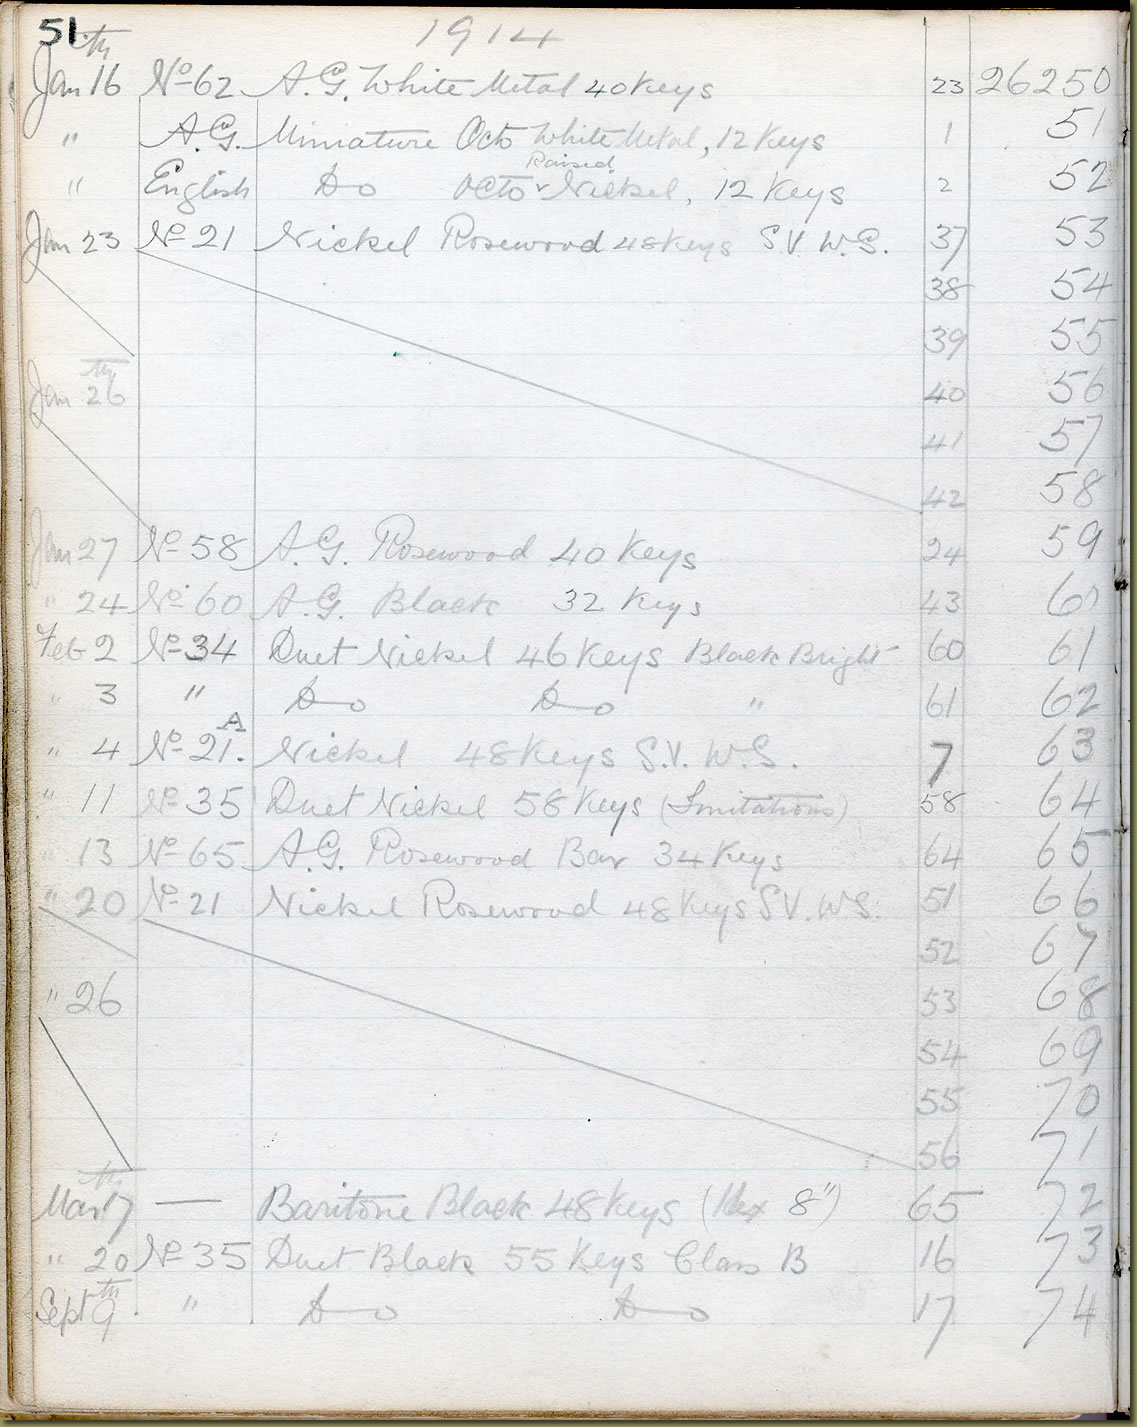 51 1914
Jan 16th No 62 A.G. White Metal 40 Keys 23 26250
" A.G. Miniature Octo White Metal, 12 Keys 1 51
" English Do Octo Raised Nickel, 12 Keys 2 52
Jan 23 No 21 Nickel Rosewood 48 Keys S.V. W.S. 37 53
38 54
39 55
Jan 26th 40 56
41 57
42 58
Jan 27 No 58 A.G. Rosewood 40 Keys 24 59
" 24 No 60 A.G. Black 32 Keys 43 60
Feb 2 No 34 Duet Nickel 46 Keys Black Bright 60 61
" 3 " Do Do " 61 62
" 4 No 21A. Nickel 48 Keys S.V. W.S. 7 63
" 11 No 35 Duet Nickel 58 Keys (Imitations) 58 64
" 13 No 65 A.G. Rosewood Bar 34 Keys 64 65
" 20 No 21 Nickel Rosewood 48 Keys S.V. W.S. 51 66
52 67
" 26 53 68
54 69
55 70
56 71
Mar 17th — Baritone Black 48 Keys (Hex 8") 65 72
" 20 No 35 Duet Black 55 Keys Class B 16 73
Sept 9th " Do Do 17 74